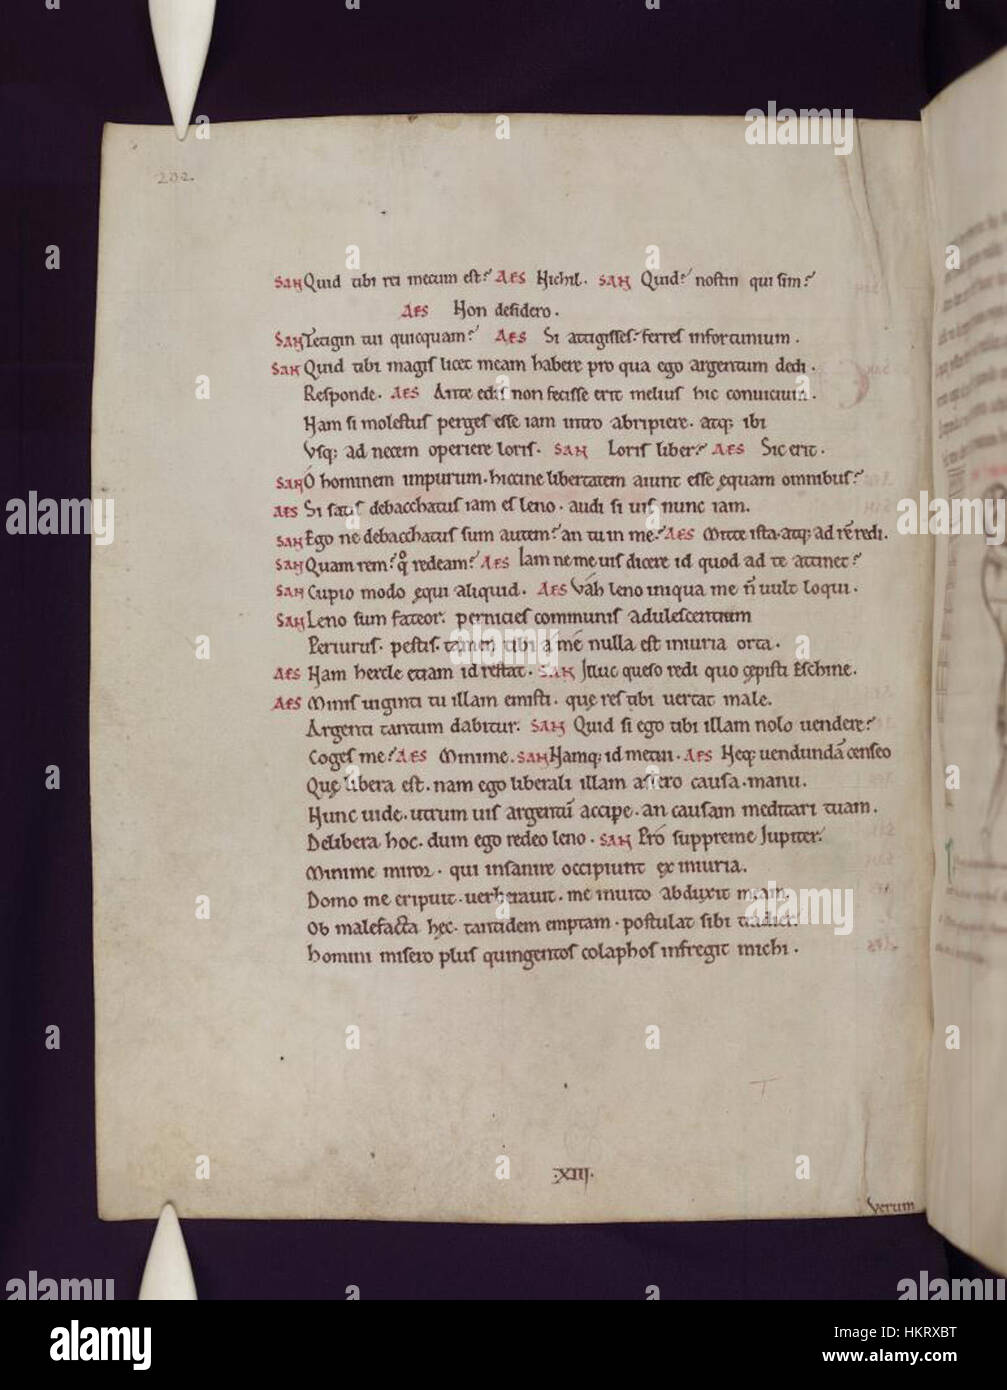 202.
SAN Quid tibi rei mecum est? AES Nichil. SAN Quid? nostin qui sim?
AES Non desidero.
SAN Tetigin tui quicquam? AES Si attigisses. ferres infortunium.
SAN Quid tibi magis licet meam habere pro qua ego argentum dedi.
Responde. AES Ante edis non fecisse erit melius hic conuicium.
Nam si molestus perges esse iam intro abripiere. atq; ibi
Vsq; ad necem operiere loris. SAN Loris liber? AES Sic erit.
SAN O hominem impurum. hiccine libertatem aiunt esse ęquam omnibus?
AES Si satis debacchatus iam es leno. audi si uis nunc iam.
SAN Ego ne debacchatus sum autem? an tu in me? AES Mitte ista. atq; ad rē redi.
SAN Quam rem? qͦ redeam? AES Iam ne me uis dicere id quod ad te attinet?
SAN Cupio modo ęqui aliquid. AES Váh leno iniqua me n̄ uult loqui.
SAN Leno sum fateor. pernicies communis adulescentium
Periurus. pestis. tamen tibi a me nulla est iniuria orta.
AES Nam hercle etiam id restat. SAN Illuc quęso redi quo cępisti Eschine.
AES Minis uiginti tu illam emisti. quę res tibi uertat male.
Argenti tantum dabitur. SAN Quid si ego tibi illam nolo uendere?
Coges me? AES Minime. SAN Namq; id metui. AES Neq; uendundā censeo
Quę libera est. nam ego liberali illam assero causa. manu.
Nunc uide. utrum uis argentū accipe. an causam meditari tuam.
Delibera hoc. dum ego redeo leno. SAN Pró suppreme Iupiter.
Minime miror. qui insanire occipiunt ex iniuria.
Domo me eripuit. uerberauit. me inuito abduxit meam.
Ob malefacta hęc. tantidem emptam. postulat sibi tradier.
Homini misero plus quingentos colaphos infregit michi.
.XIIJ.
Verum
alamy
Image ID: HKRXBT
www.alamy.com